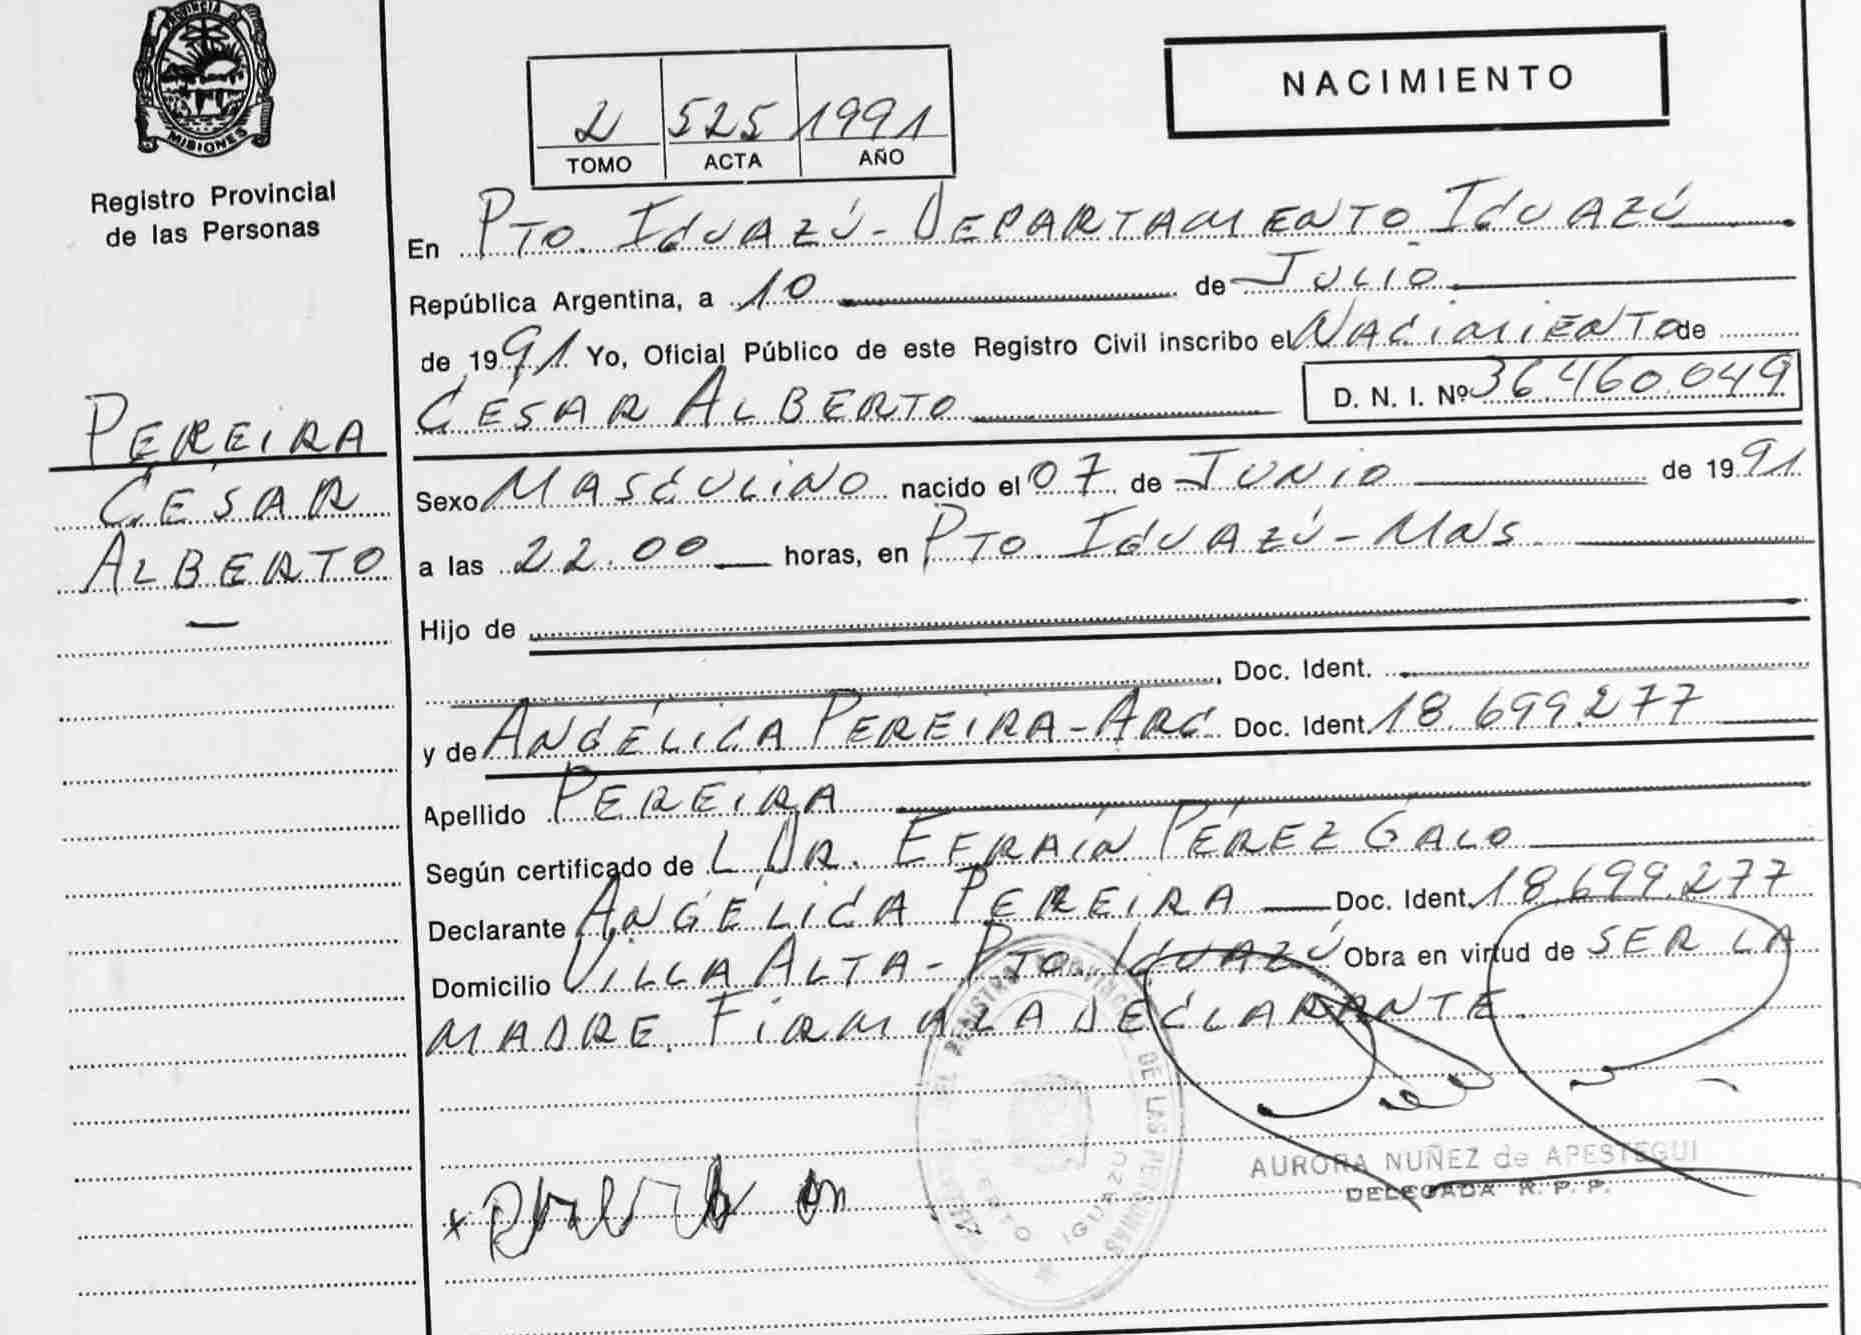 PROVINCIA DE
MISIONES
Registro Provincial
de las Personas
PEREIRA
CÉSAR
ALBERTO
2 525 1991
TOMO ACTA AÑO
NACIMIENTO
En PTO. IGUAZÚ - DEPARTAMENTO IGUAZÚ
República Argentina, a 10 de JULIO
de 1991 Yo, Oficial Público de este Registro Civil inscribo el NACIMIENTO de
CÉSAR ALBERTO D. N. I. Nº 36.460.049
Sexo MASCULINO nacido el 07 de JUNIO de 1991
a las 22.00 horas, en PTO. IGUAZÚ - MNS
Hijo de
, Doc. Ident.
y de ANGÉLICA PEREIRA - ARG. Doc. Ident. 18.699.277
Apellido PEREIRA
Según certificado de L DR. EFRAÍN PÉREZ GALO
Declarante ANGÉLICA PEREIRA Doc. Ident. 18.699.277
Domicilio VILLA ALTA - PTO. IGUAZÚ Obra en virtud de SER LA
MADRE. FIRMA LA DECLARANTE.
PROVINCIAL DE LAS PERSONAS
PUERTO IGUAZU
AURORA NUÑEZ de APESTEGUI
DELEGADA R. P. P.